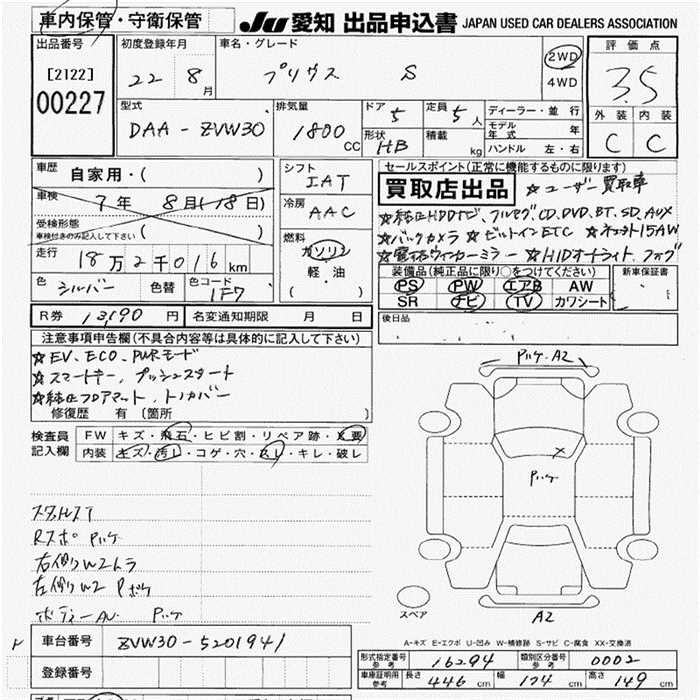 車内保管・守衛保管
JU 愛知 出品申込書 JAPAN USED CAR DEALERS ASSOCIATION
出品番号
[2122]
00227
初度登録年月
22 8月
車名・グレード
プリウス S
2WD
4WD
評価点
3.5
外装 内装
C C
型式
DAA-ZVW30
排気量
1800 CC
ドア 5
形状 HB
定員 5人
積載 kg
ディーラー・並行
モデル年式 年
ハンドル 左・右
車歴
自家用・( )
車検
7年 8月(18日)
受検形態
車検付きのみ記入して下さい
( )
走行
18万2千016km
色 シルバー 色替 色コード 1F7
シフト
IAT
冷房
AAC
燃料
ガソリン
軽・油
( )
セールスポイント(正常に機能するものに限ります)
買取店出品 ☆ユーザー買取車
☆純正HDDナビ、フルセグ,CD,DVD,BT,SD,AUX
☆バックカメラ ☆ビルトインETC ☆ 15AW
☆ ウィンカーミラー ☆HIDオートライト,フォグ
装備品(純正品に限り○をつけてください)
PS PW エアB AW
SR ナビ TV カワシート
新車保証書
後日品
R券 13,190円
名変通知期限 月 日
注意事項申告欄(不具合内容等は具体的に記入して下さい)
☆EV、ECO、PWRモード
☆スマートキー、プッシュスタート
☆純正フロアマット、トノカバー
修復歴 有〔箇所 〕
検査員記入欄
FW キズ・飛石・ヒビ割・リペア跡・X要
内装 キズ・汚レ・コゲ・穴・スレ・キレ・破レ
スタッドレスT
Rスポ Pハゲ
右側りW2トラ
左側りW2 Pボケ
ボディーAU Pハゲ
Pハゲ A2
Pハゲ
A2
スペア
A-キズ E-エクボ U-凹み W-補修跡 S-サビ C-腐食 XX-交換済
車台番号
ZVW30-5201941
登録番号
形式指定番号参考 16294
類別区分番号参考 0002
車庫証明用参考 長さ 446cm 幅 174cm 高さ 149cm